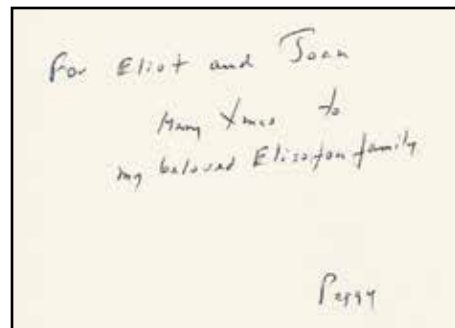 For Eliot and Joan
Merry Xmas to
my beloved Elisofon family
Peggy